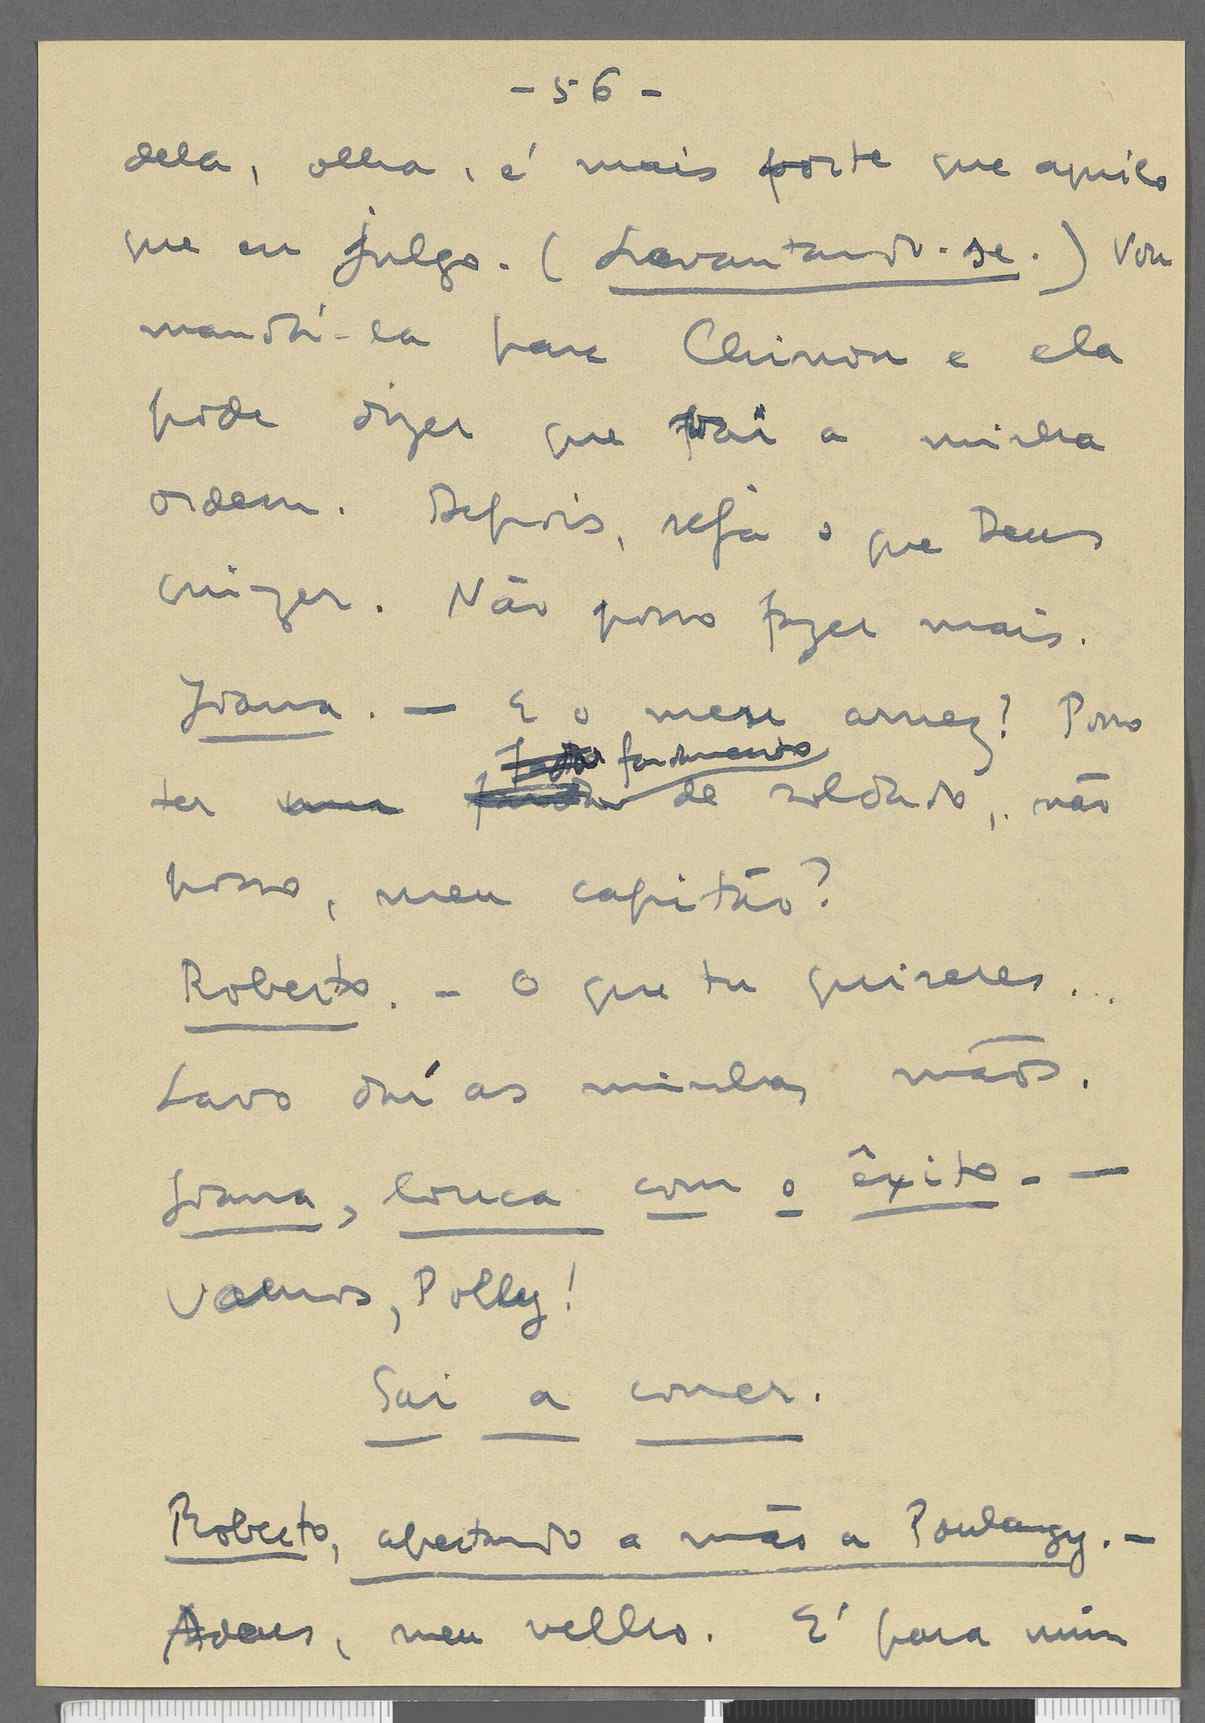 - 56 -
dela, olha, é mais forte que aquilo
que eu julgo. (Levantando-se.) Vou
mandá-la para Chinon e ela
pode dizer que vai a minha
ordem. Depois, seja o que Deus
quizer. Não posso fazer mais.
Joana. — E o meu arnez? Posso
fardamento
ter uma farda de soldado, não
posso, meu capitão?
Roberto. - O que tu quizeres...
Lavo daí as minhas mãos.
Joana, louca com o êxito. —
Vamos, Polly!
Sai a correr.
Roberto, apertando a mão a Poulangy. -
Adeus, meu velho. E' para mim